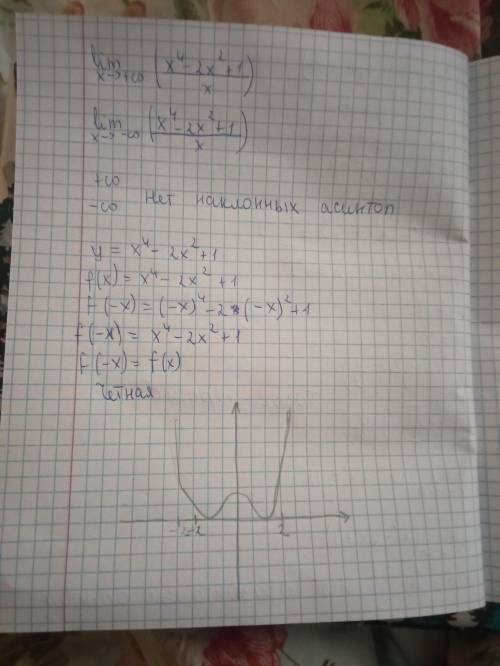 lim x→+∞ (x⁴-2x²+1 / x)
lim x→-∞ (x⁴-2x²+1 / x)
+∞
-∞ Нет наклонных асинтоп
y = x⁴ - 2x² + 1
f(x) = x⁴ - 2x² + 1
f(-x) = (-x)⁴ - 2*(-x)² + 1
f(-x) = x⁴ - 2x² + 1
f(-x) = f(x)
Четная
-2 2